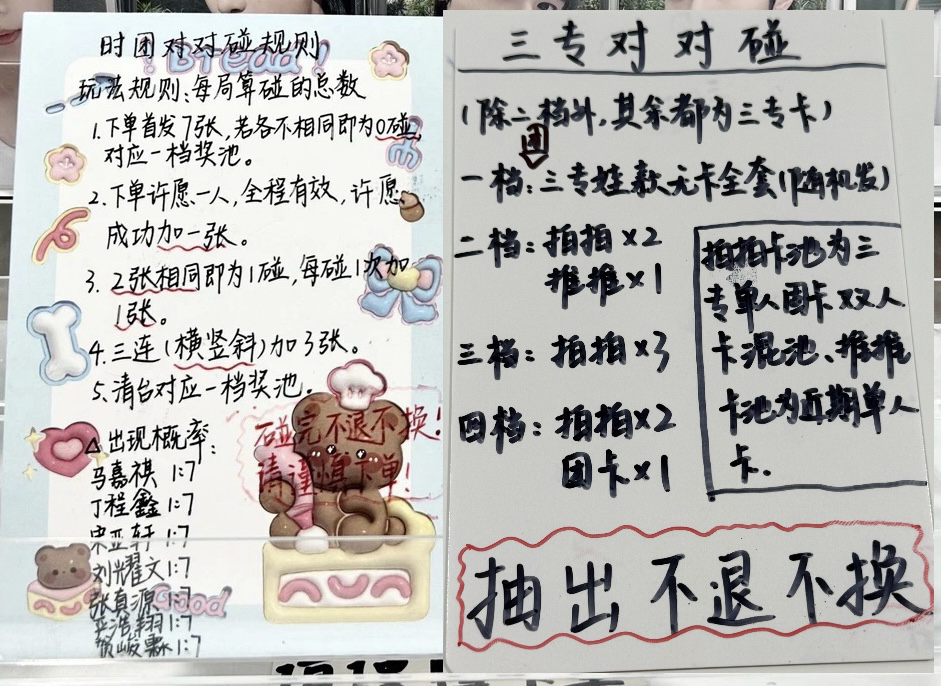 时团对对碰规则
Bread!
玩法规则:每局算碰的总数
1.下单首发7张,若各不相同即为0碰,
对应一档奖池。
2.下单许愿一人,全程有效,许愿
成功加一张。
3. 2张相同即为1碰,每碰1次加
1张。
4.三连(横竖斜)加3张。
5.清台对应一档奖池。
碰完不退不换!
请谨慎下单!
△出现概率:
马嘉祺 1:7
丁程鑫 1:7
宋亚轩 1:7
刘耀文 1:7
张真源 1:7
严浩翔 1:7
贺峻霖 1:7
三专对对碰
(除二档外,其余都为三专卡)
团
一档:三专娃款无卡全套(随机发)
二档:拍拍×2
推推×1
三档:拍拍×3
四档:拍拍×2
团卡×1
拍拍卡池为三
专单人团卡双人
卡混池、推推
卡池为近期单人
卡.
抽出不退不换